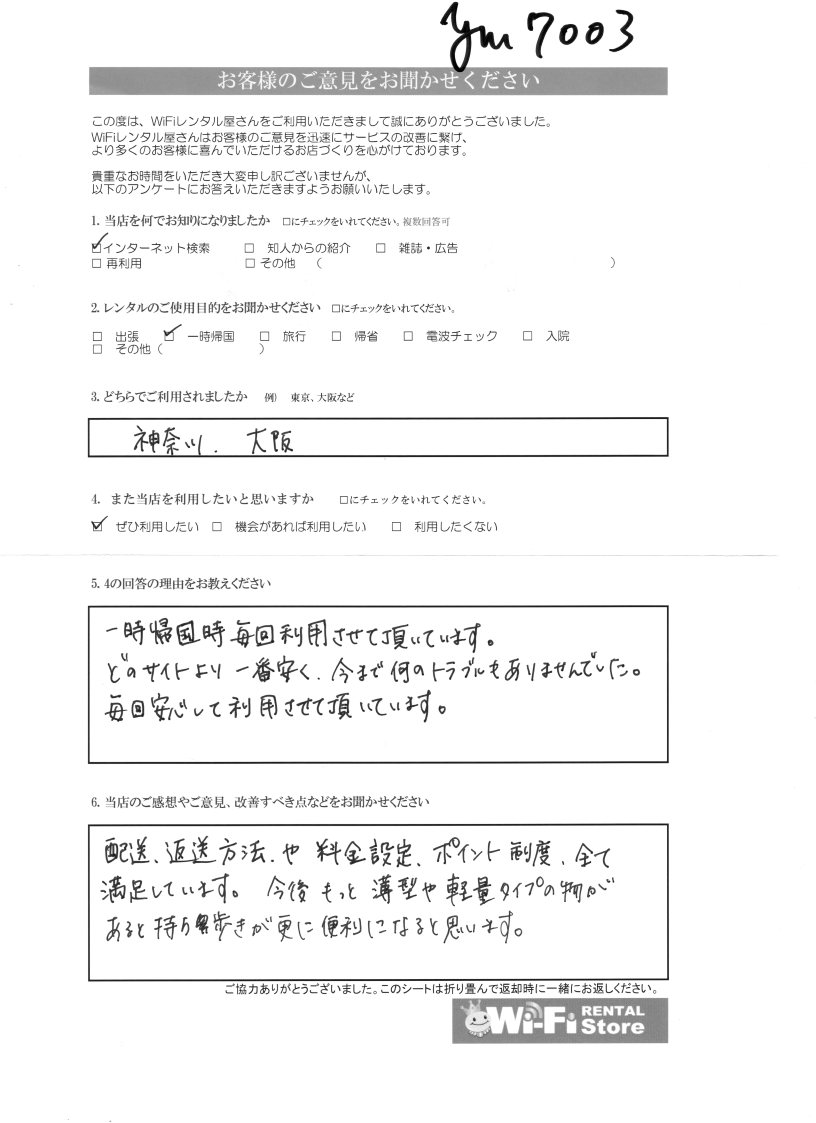 ym7003
お客様のご意見をお聞かせください
この度は、WiFiレンタル屋さんをご利用いただきまして誠にありがとうございました。
WiFiレンタル屋さんはお客様のご意見を迅速にサービスの改善に繋げ、
より多くのお客様に喜んでいただけるお店づくりを心がけております。
貴重なお時間をいただき大変申し訳ございませんが、
以下のアンケートにお答えいただきますようお願いいたします。
1. 当店を何でお知りになりましたか □にチェックをいれてください。複数回答可
☑インターネット検索 □ 知人からの紹介 □ 雑誌・広告
□ 再利用 □ その他 （ ）
2. レンタルのご使用目的をお聞かせください □にチェックをいれてください。
□ 出張 ☑ 一時帰国 □ 旅行 □ 帰省 □ 電波チェック □ 入院
□ その他（ ）
3. どちらでご利用されましたか 例） 東京、大阪など
神奈川、大阪
4. また当店を利用したいと思いますか □にチェックをいれてください。
☑ ぜひ利用したい □ 機会があれば利用したい □ 利用したくない
5. 4の回答の理由をお教えください
一時帰国時毎回利用させて頂いています。
どのサイトより一番安く、今まで何のトラブルもありませんでした。
毎回安心して利用させて頂いています。
6. 当店のご感想やご意見、改善すべき点などをお聞かせください
配送、返送方法、や料金設定、ポイント制度、全て
満足しています。今後もっと薄型や軽量タイプの物が
あると持ち歩きが更に便利になると思います。
ご協力ありがとうございました。このシートは折り畳んで返却時に一緒にお返しください。
Wi-Fi RENTAL Store